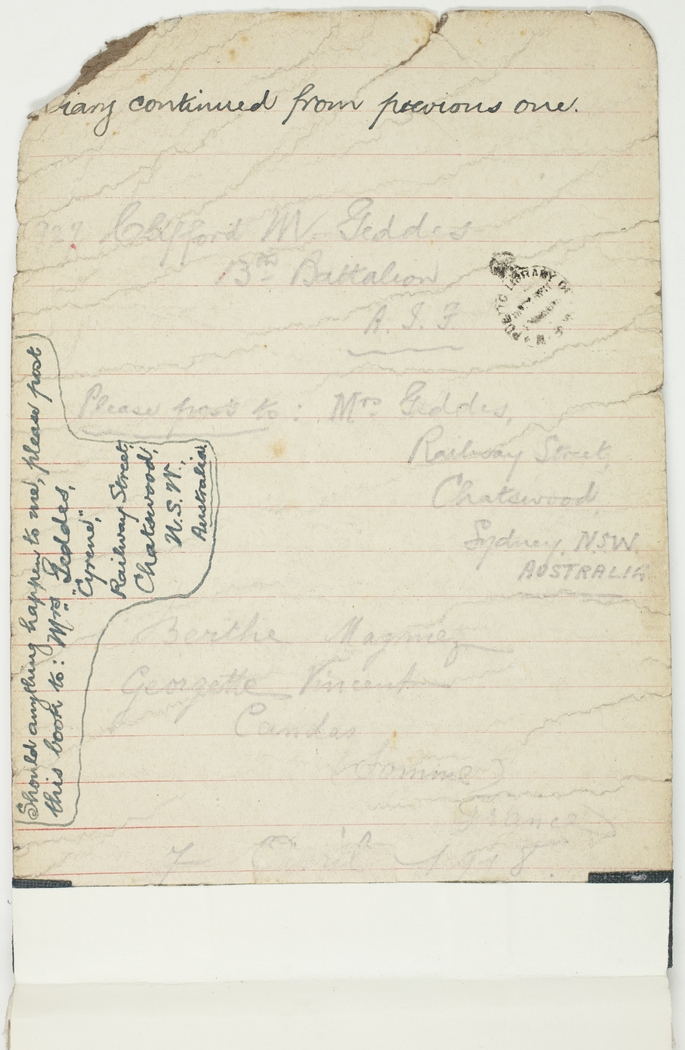 Diary continued from previous one.
Clifford M. Geddes
13th Battalion
A. I. F
Please post to: Mrs Geddes,
Railway Street,
Chatswood,
Sydney. NSW.
AUSTRALIA
Should anything happen to me, please post
this book to: Mrs Geddes,
"Cyrene",
Railway Street,
Chatswood,
N.S.W.
Australia.
Berthe Magniez
Georgette Vincent
Candas
(Somme)
France
7 April 1918
PUBLIC LIBRARY OF N.S.W.